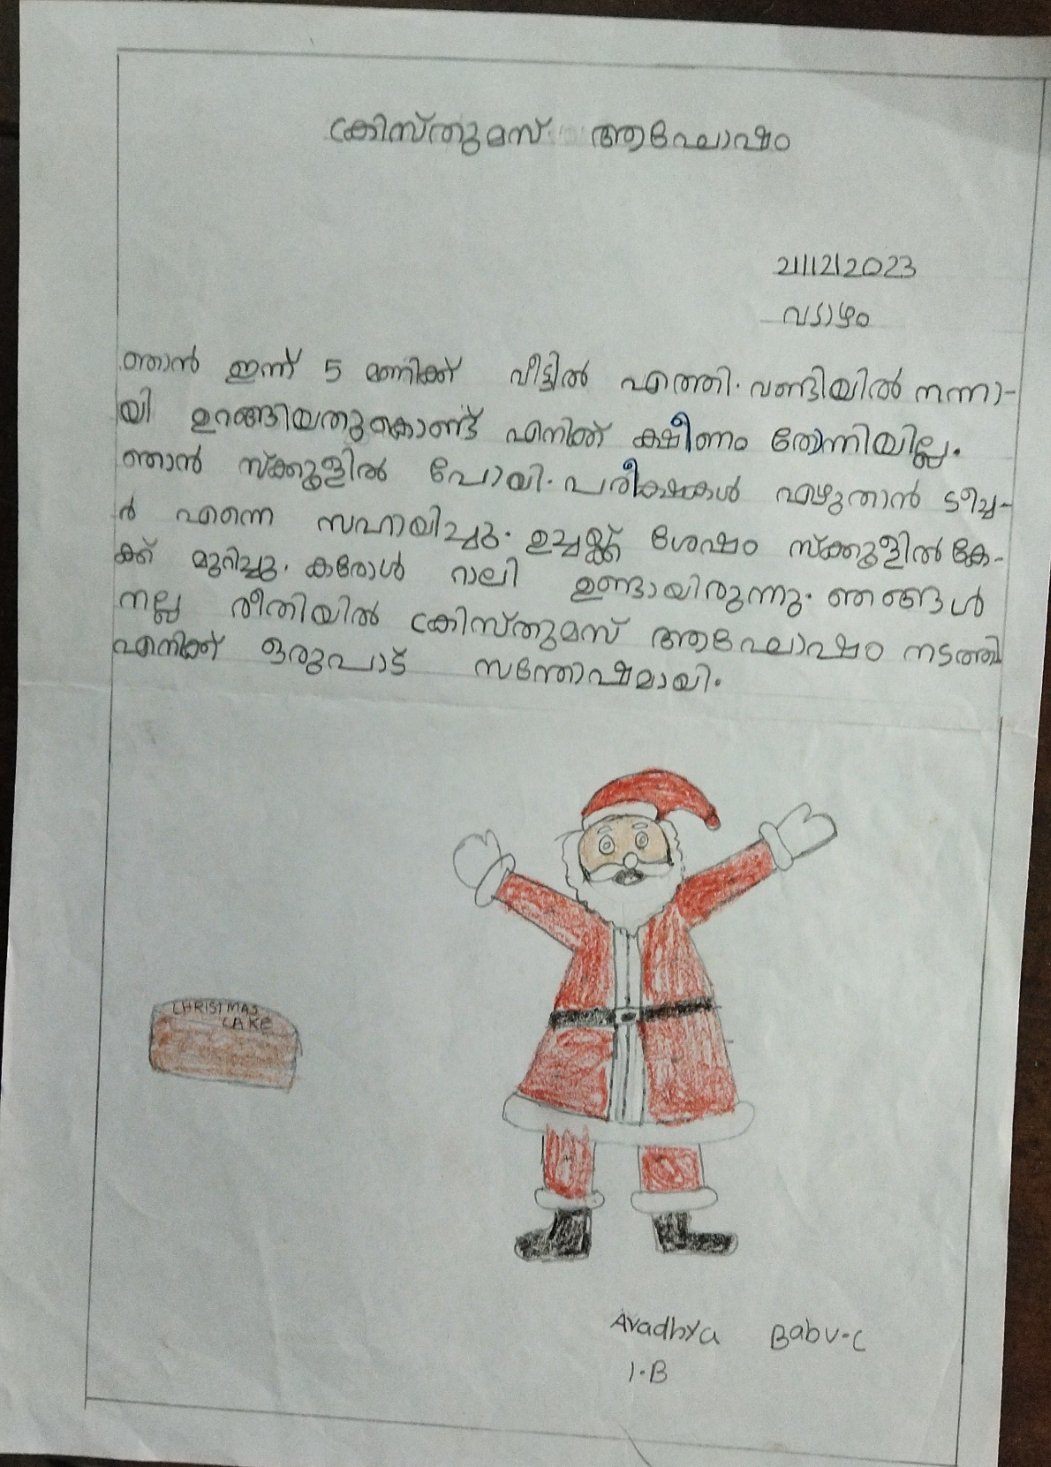 ക്രിസ്തുമസ് ആഘോഷം
21/12/2023
വ്യാഴം
ഞാൻ ഇന്ന് 5 മണിക്ക് വീട്ടിൽ എത്തി. വണ്ടിയിൽ നന്നാ-
യി ഉറങ്ങിയതുകൊണ്ട് എനിക്ക് ക്ഷീണം തോന്നിയില്ല.
ഞാൻ സ്ക്കൂളിൽ പോയി. പരീക്ഷകൾ എഴുതാൻ ടീച്ച-
ർ എന്നെ സഹായിച്ചു. ഉച്ചയ്ക്ക് ശേഷം സ്ക്കൂളിൽ കേ-
ക്ക് മുറിച്ചു. കരോൾ റാലി ഉണ്ടായിരുന്നു. ഞങ്ങൾ
നല്ല രീതിയിൽ ക്രിസ്തുമസ് ആഘോഷം നടത്തി
എനിക്ക് ഒരുപാട് സന്തോഷമായി.
CHRISTMAS
CAKE
Avadhya Babu-C
1.B